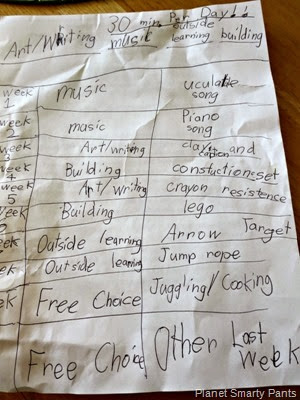 30 mins Per Day!!
Art/Writing music outside learning building
week 1 music uculatle song
week 2 music Piano song
week Art/writing clay and
week 4 Building constuctionset
week 5 Art/writing crayon resistence
week Building lego
week Outside learning Arrow Target
week Outside learning Jump rope
week Free Choice Juggling/Cooking
Free Choice Other Last Week
Planet Smarty Pants